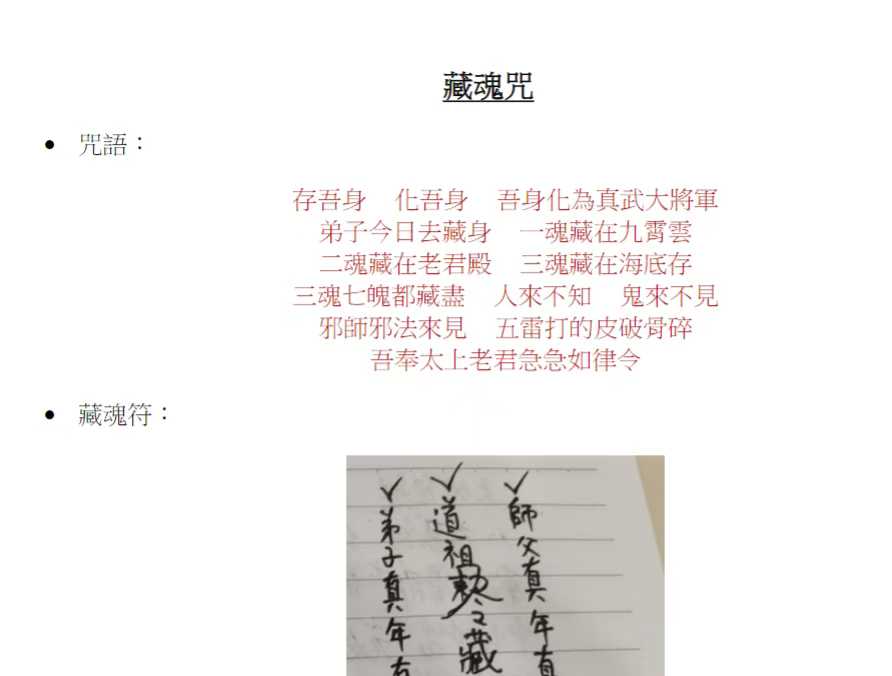 藏魂咒
• 咒語：
存吾身　化吾身　吾身化為真武大將軍
弟子今日去藏身　一魂藏在九霄雲
二魂藏在老君殿　三魂藏在海底存
三魂七魄都藏盡　人來不知　鬼來不見
邪師邪法來見　五雷打的皮破骨碎
吾奉太上老君急急如律令
• 藏魂符：
師父真年有
道祖敕令藏
弟子真年有